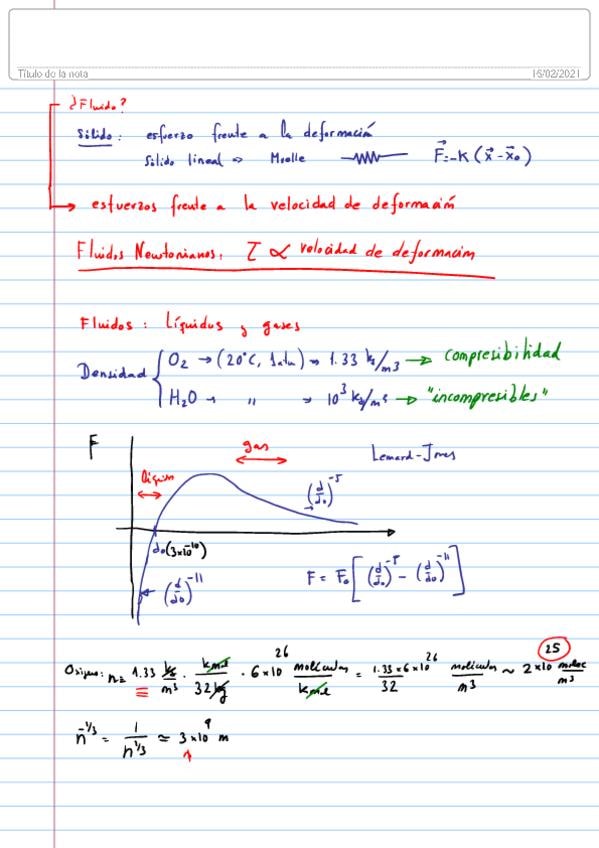 Título de la nota 15/02/2021
¿Fluido?
Sólido: esfuerzo frente a la deformación
Sólido lineal => Muelle F⃗=-K(x⃗-x⃗₀)
esfuerzos frente a la velocidad de deformación
Fluidos Newtonianos: τ ∝ velocidad de deformación
Fluidos: Líquidos y gases
Densidad { O₂ → (20°C, 1atm) → 1.33 kg/m3 → compresibilidad
H₂O → " → 10³ kg/m³ → "incompresibles"
F gas Lennard-Jones
líquido
(d/d₀)⁻⁵
d₀(3×10⁻¹⁰)
(d/d₀)⁻¹¹ F = F₀[(d/d₀)⁻⁵ - (d/d₀)⁻¹¹]
Oxígeno: n= 1.33 kg/m³ · kmol/32kg · 6×10²⁶ moléculas/kmol = 1.33×6×10²⁶/32 moléculas/m³ ~ 2×10²⁵ molec/m³
n⁻¹/³ = 1/n¹/³ ≈ 3×10⁹ m